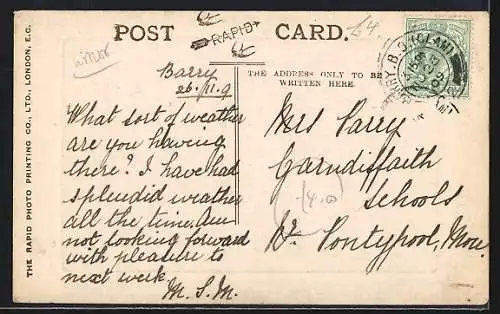 POST CARD.
RAPID
£4
THE ADDRESS ONLY TO BE
WRITTEN HERE.
Barry
26.11.9
What sort of weather
are you having
there? I have had
splendid weather
all the time. Am
not looking forward
with pleasure to
next week.
M. S. M.
Mrs Parry
Garndiffaith
Schools
Nr. Pontypool, Mon.
(4.00
BARRY. B.O.
THE RAPID PHOTO PRINTING CO., LTD., LONDON, E.C.